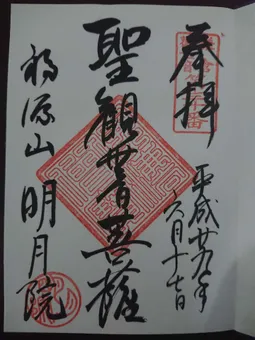 奉拝
平成廿九年
六月十七日
聖観世音菩薩
福源山
明月院